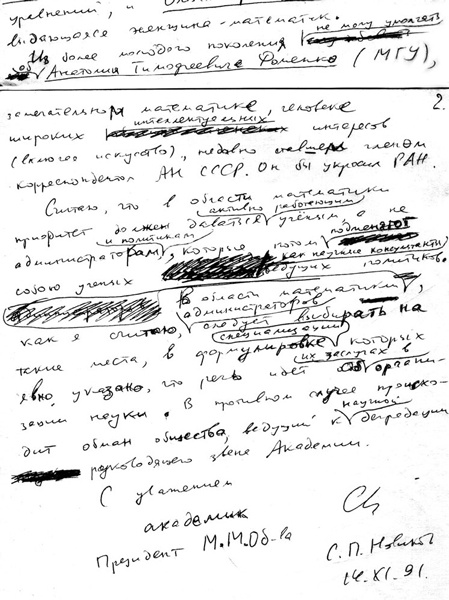 уравнений, и
выдающаяся женщина-математик.
Из более молодого поколения не могу умолчать
об Анатолии Тимофеевиче Фоменко (МГУ),
2.
замечательном математике, человеке
широких интеллектуальных интересов
(включая искусство), недавно ставшем членом
корреспондентом АН СССР. Он бы украсил РАН.
Считаю, что в области математики
приоритет должен даваться активно работающим учёным а не
администраторам и политикам, которые потом подменяют
собою ученых как научные консультанты ведущих политиков.
В области математики,
как я считаю, администраторов следует выбирать на
такие места, в формулировке специализации которых
явно указано, что речь идет об их заслугах в органи-
зации науки. В противном случае происхо-
дит обман общества, ведущий к научной деградации
руководящего звена Академии.
С уважением
академик
Президент М.М.Об-ва
С. П. Новиков
14. XI. 91.